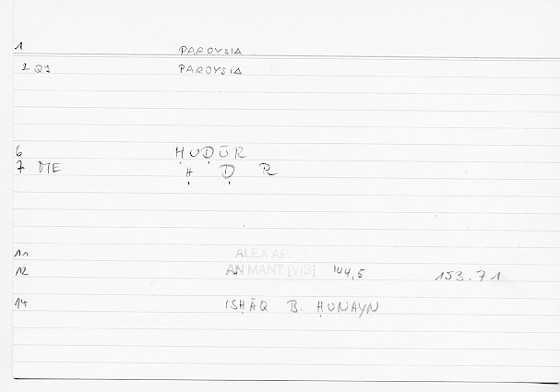 1 PAROYSIA
2 QY PAROYSIA
6 ḤUḌŪR
7 ME Ḥ Ḍ R
11 ALEX AP
12 AN MANT [VIS] 144,5 153.71
14 ISḤĀQ B. ḤUNAYN